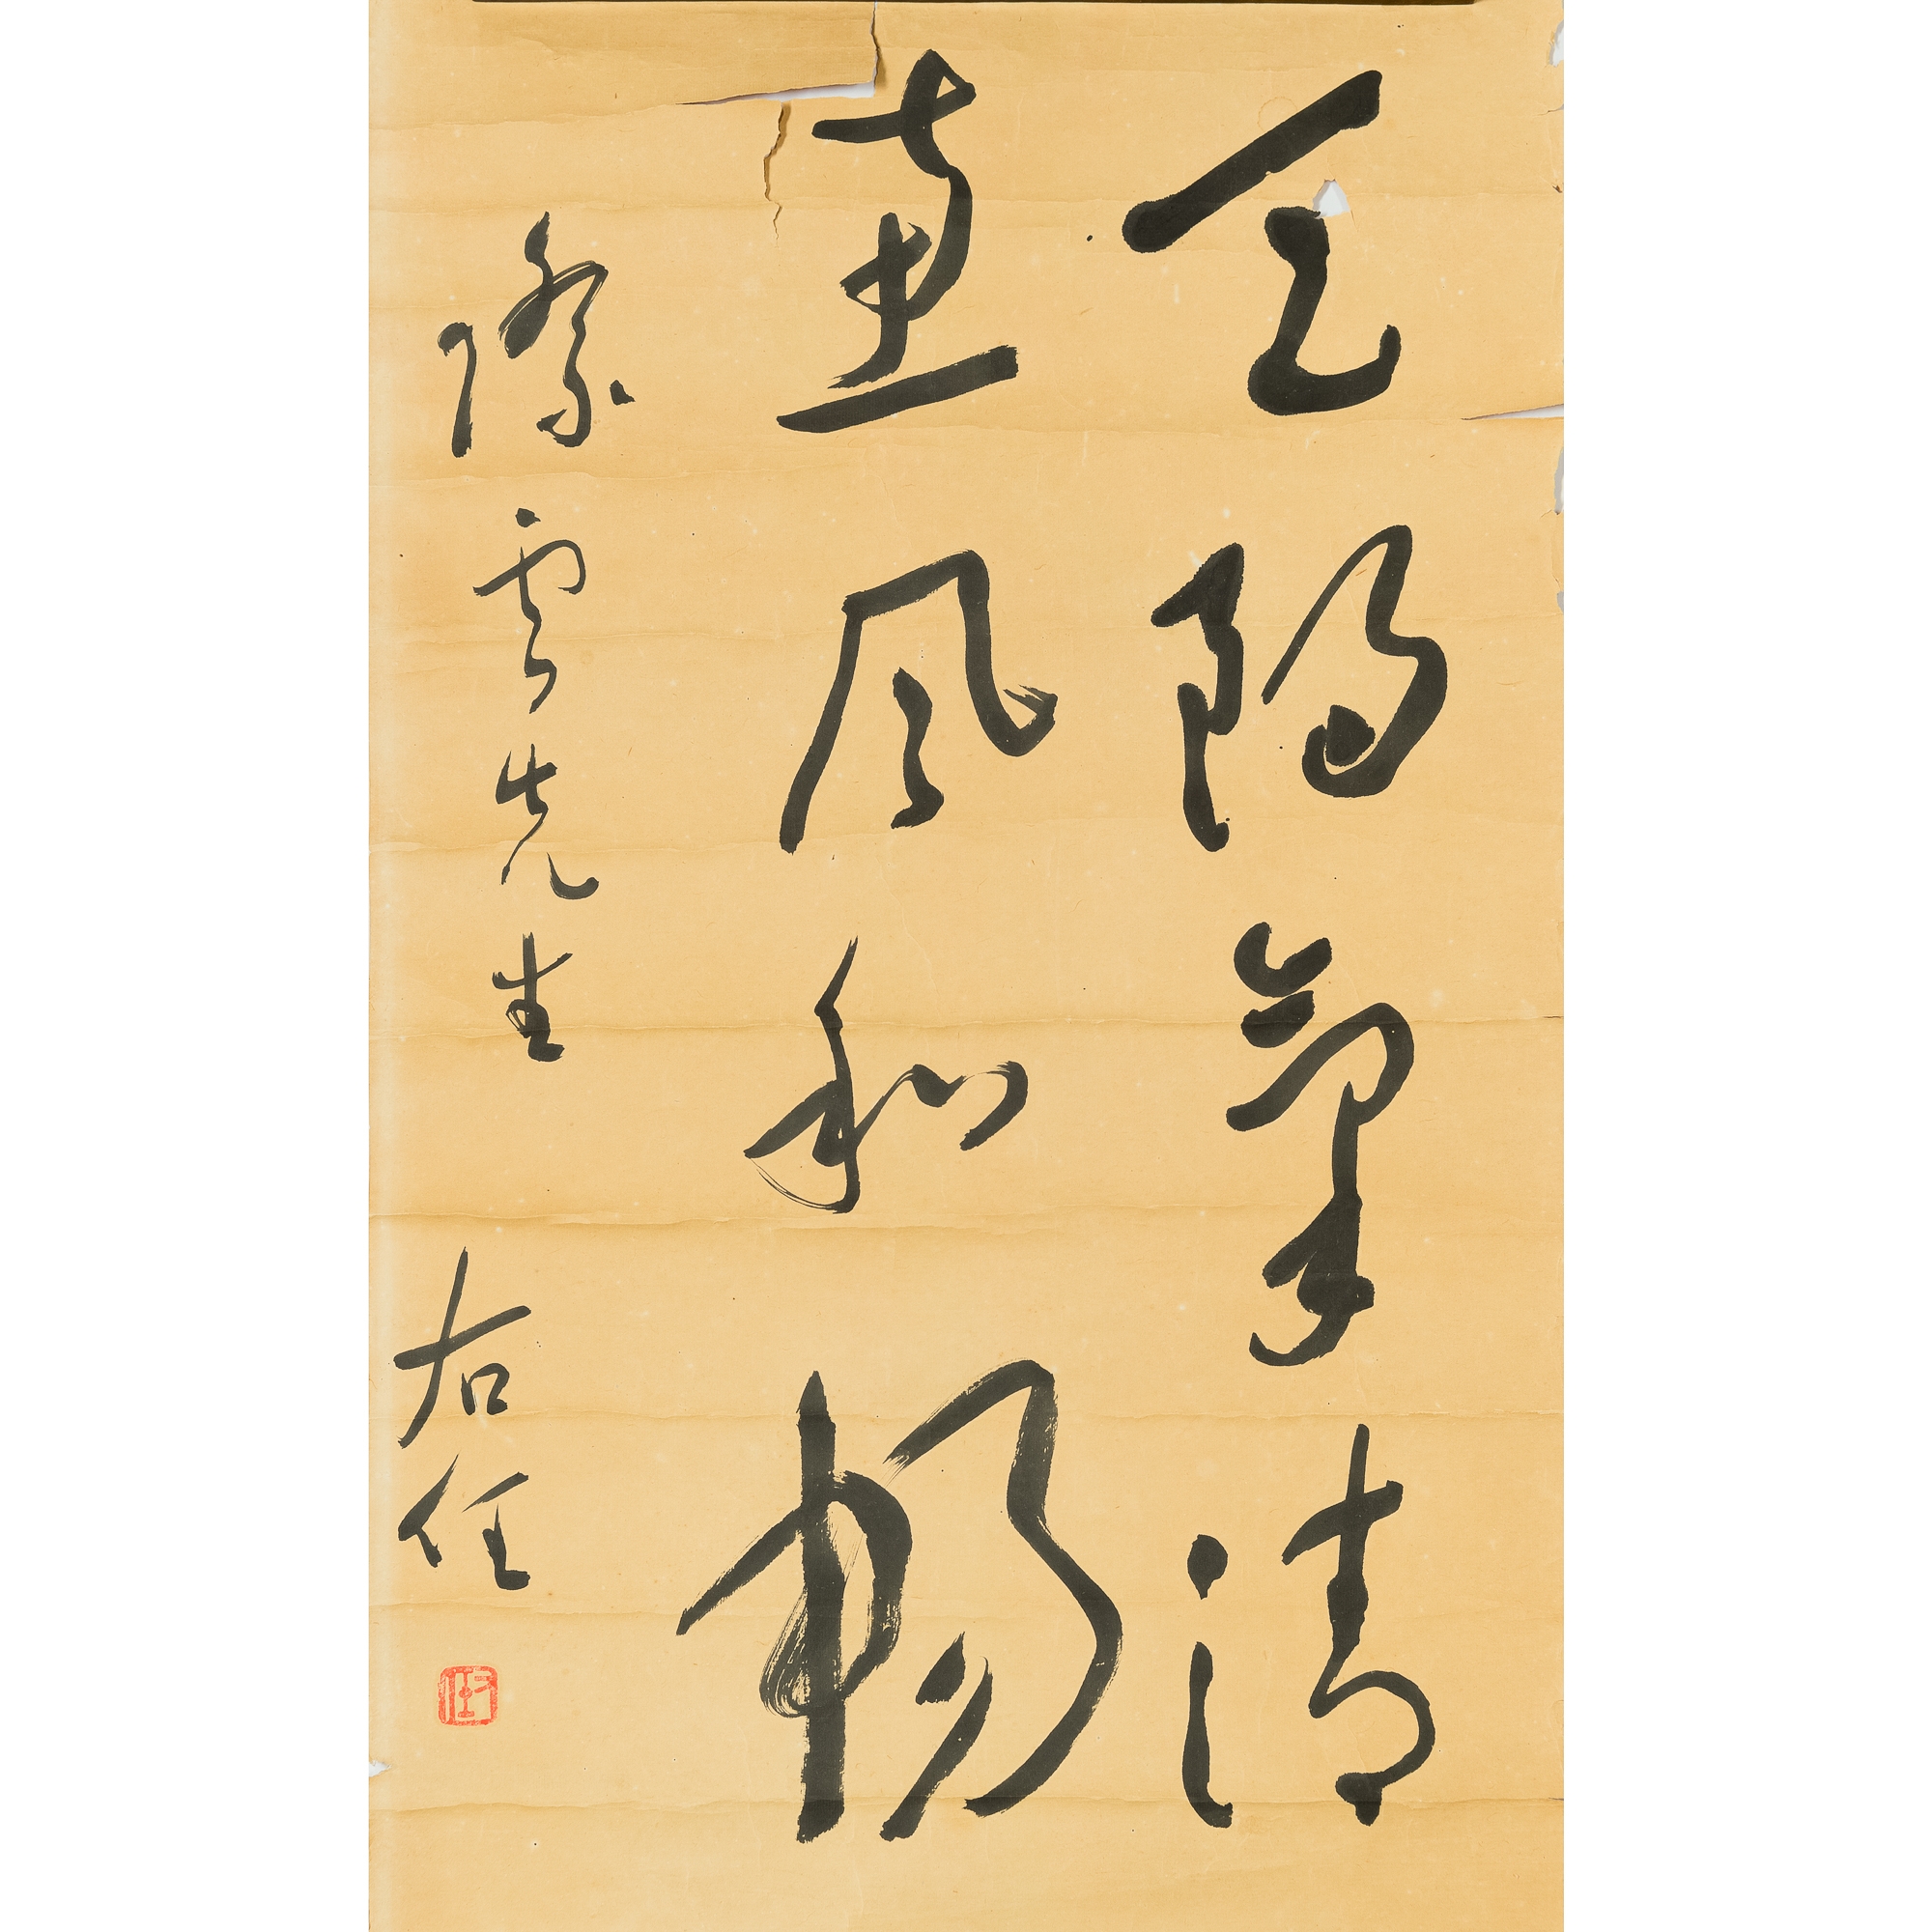 天朗氣清
惠風和暢
際雲先生
右任
右任